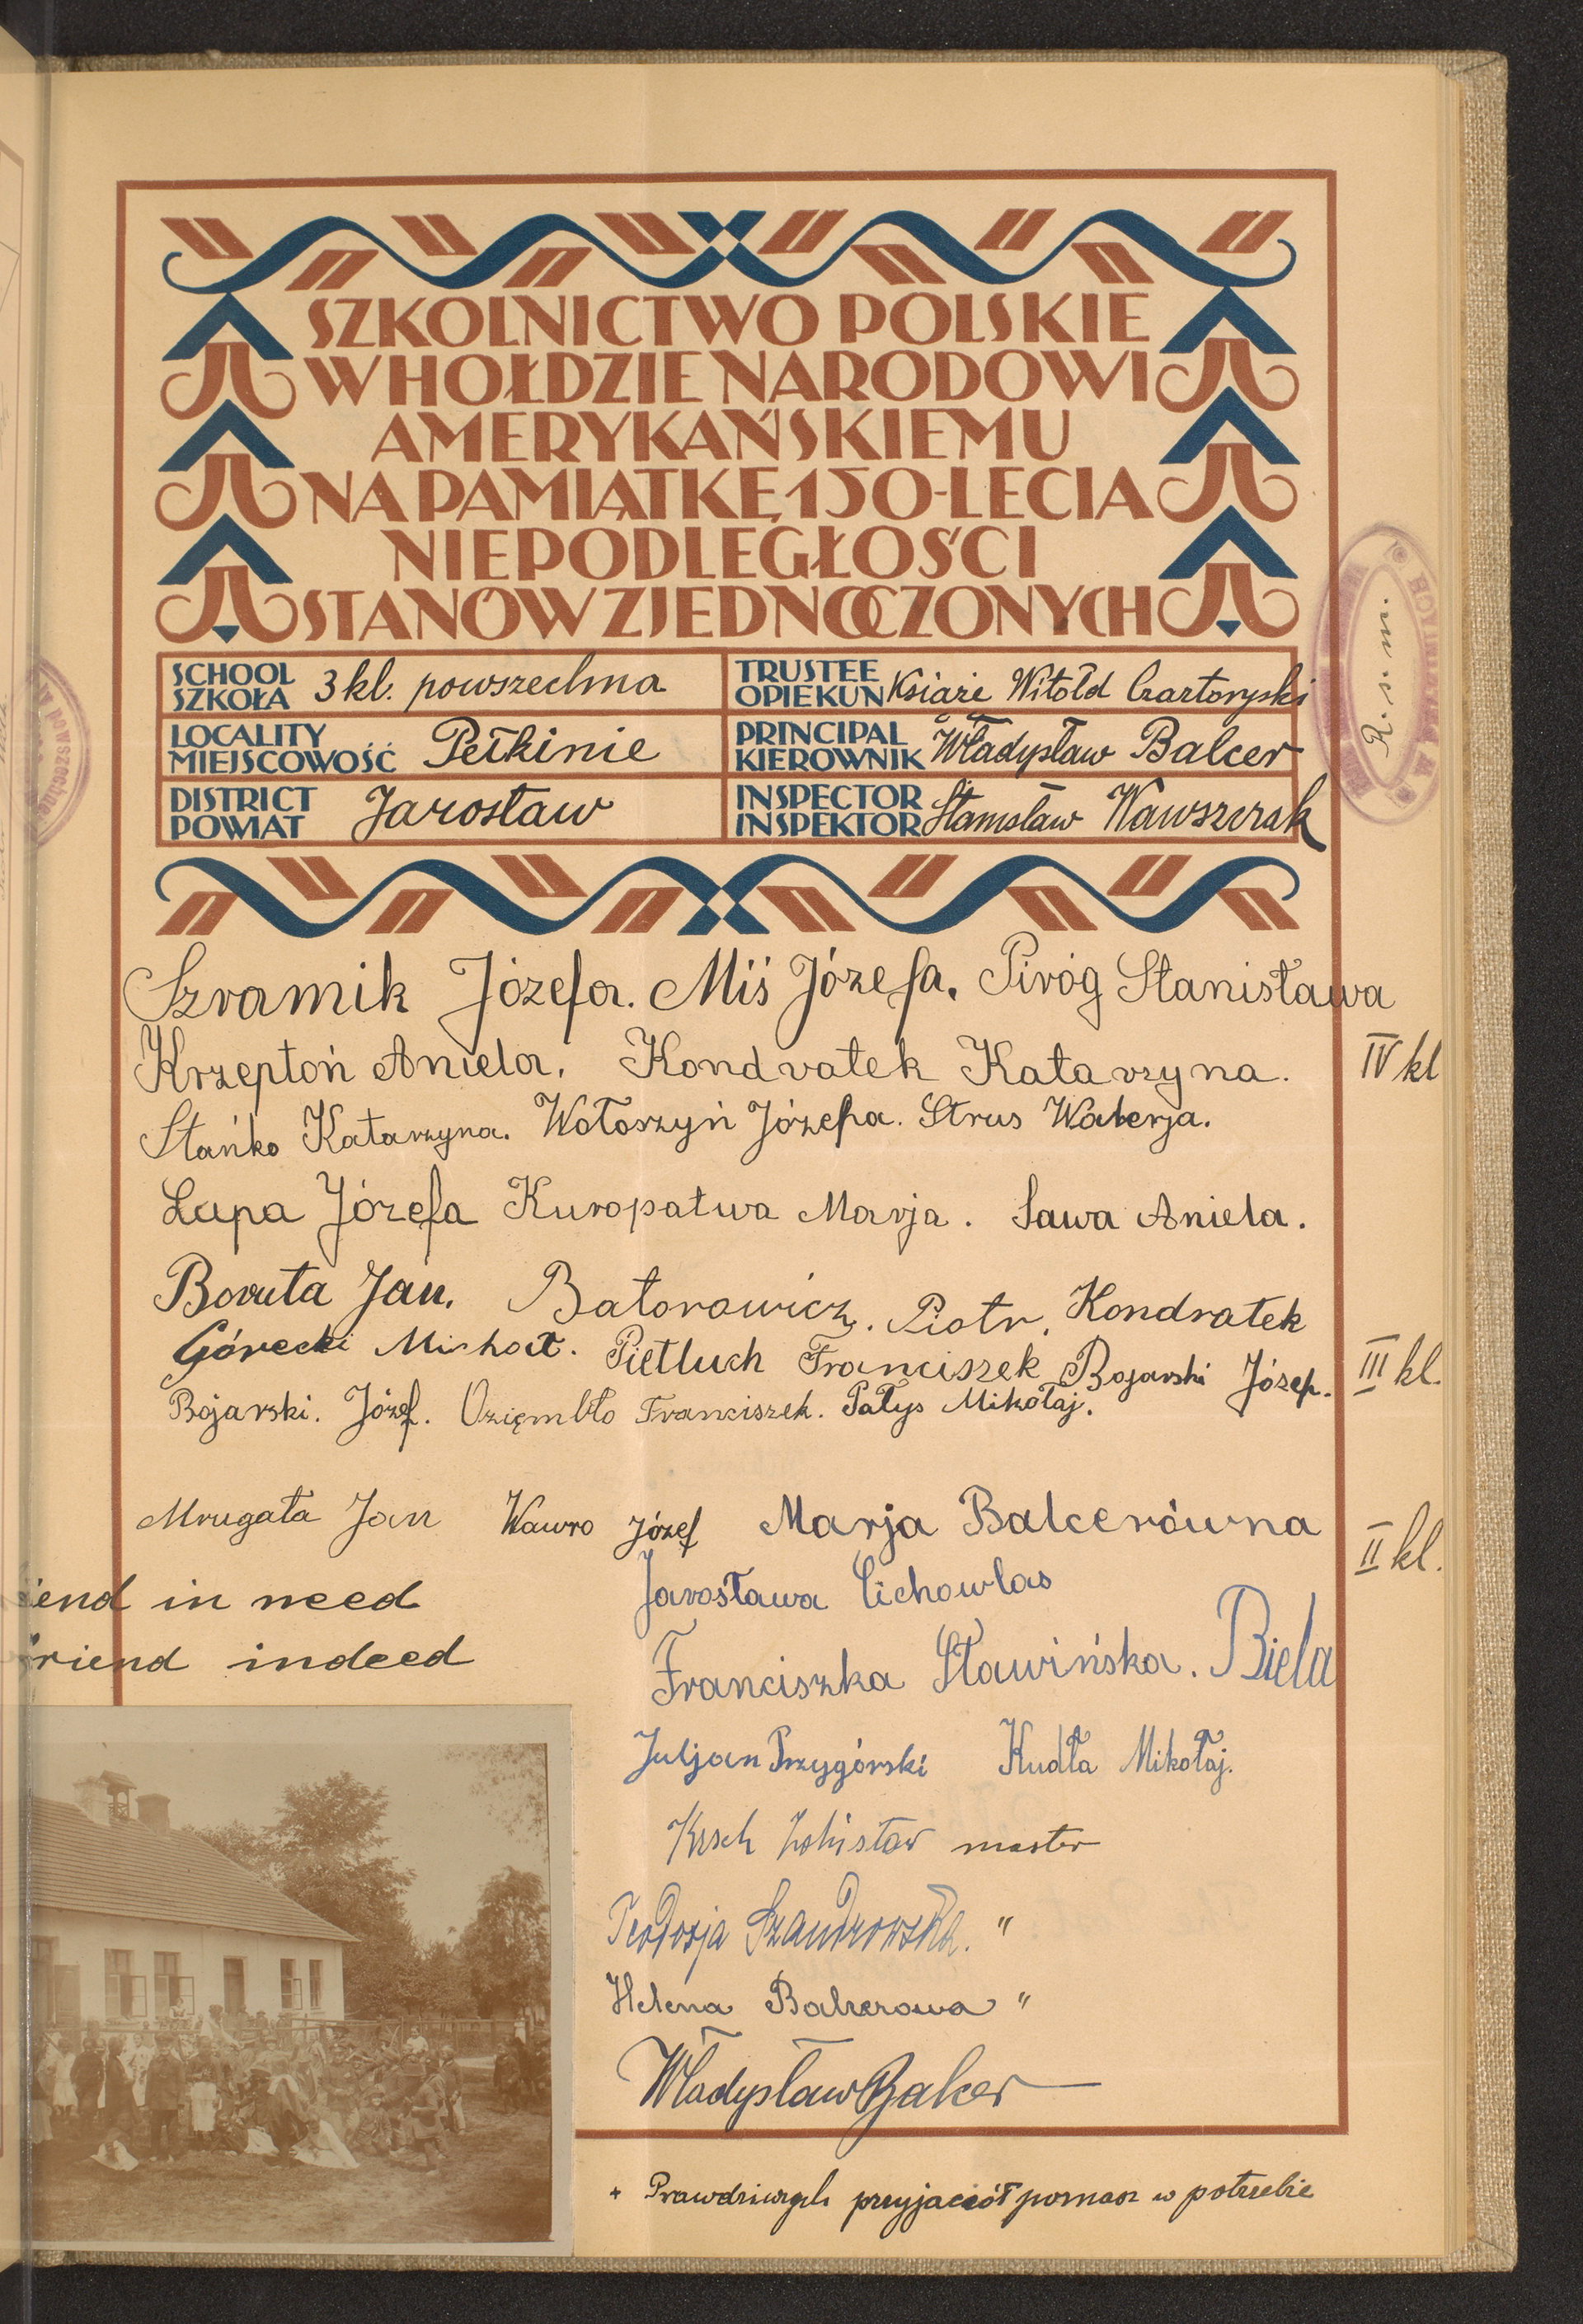 SZKOLNICTWO POLSKIE
W HOŁDZIE NARODOWI
AMERYKAŃSKIEMU
NA PAMIĄTKĘ 150-LECIA
NIEPODLEGŁOŚCI
STANÓW ZJEDNOCZONYCH
SCHOOL
SZKOŁA 3 kl. powszechna
TRUSTEE
OPIEKUN Książe Witołd Czartoryski
LOCALITY
MIEJSCOWOŚĆ Pełkinie
PRINCIPAL
KIEROWNIK Władysław Balcer
DISTRICT
POWIAT Jarosław
INSPECTOR
INSPEKTOR Stanisław Wawszczak
R. s. m.
Szramik Józefa. Miś Józefa. Piróg Stanisława
Krzeptoń Aniela. Kondratek Katarzyna. IV kl
Stańko Katarzyna. Wołoszyń Józefa. Strus Walerja.
Łapa Józefa Kuropatwa Marja. Sawa Aniela.
Boruta Jan. Batorowicz. Piotr. Kondratek
Górecki Michał. Pietluch Franciszek Bojarski Józef. III kl.
Bojarski. Józef. Oziębło Franciszek. Pałys Mikołaj.
Mrugała Jan Wawro Józef Marja Balcerówna II kl.
Jarosława Cichowlas
iend in need
friend indeed
Franciszka Sławińska. Biela
Juljan Przygórski Kudła Mikołaj.
master
Teodozja Szandrowska. "
Helena Balcerowa "
Władysław Balcer
+ Prawdziwych przyjaciół poznasz w potrzebie